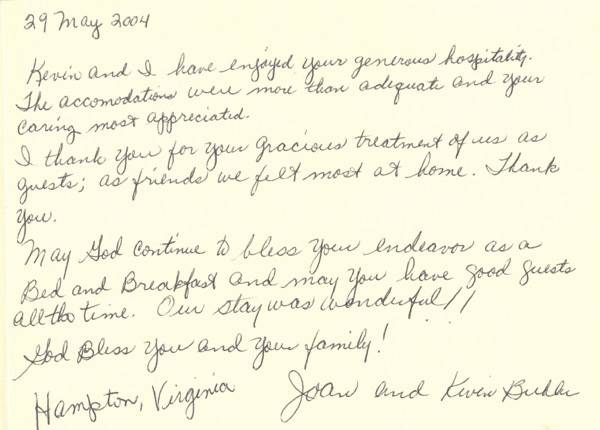 29 May 2004
Kevin and I have enjoyed your generous hospitality.
The accomodations were more than adequate and your
caring most appreciated.
I thank you for your gracious treatment of us as
guests; as friends we felt most at home. Thank
you.
May God continue to bless your endeavor as a
Bed and Breakfast and may you have good guests
all the time. Our stay was wonderful!!
God Bless you and your family!
Hampton, Virginia Joan and Kevin